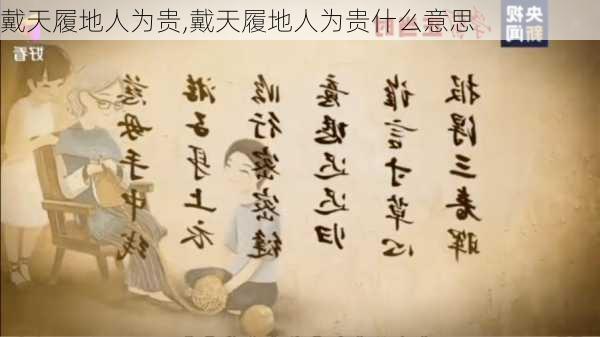 戴天履地人为贵,戴天履地人为贵什么意思
央视
新闻
好看
慈母手中线
游子身上衣
临行密密缝
意恐迟迟归
谁言寸草心
报得三春晖